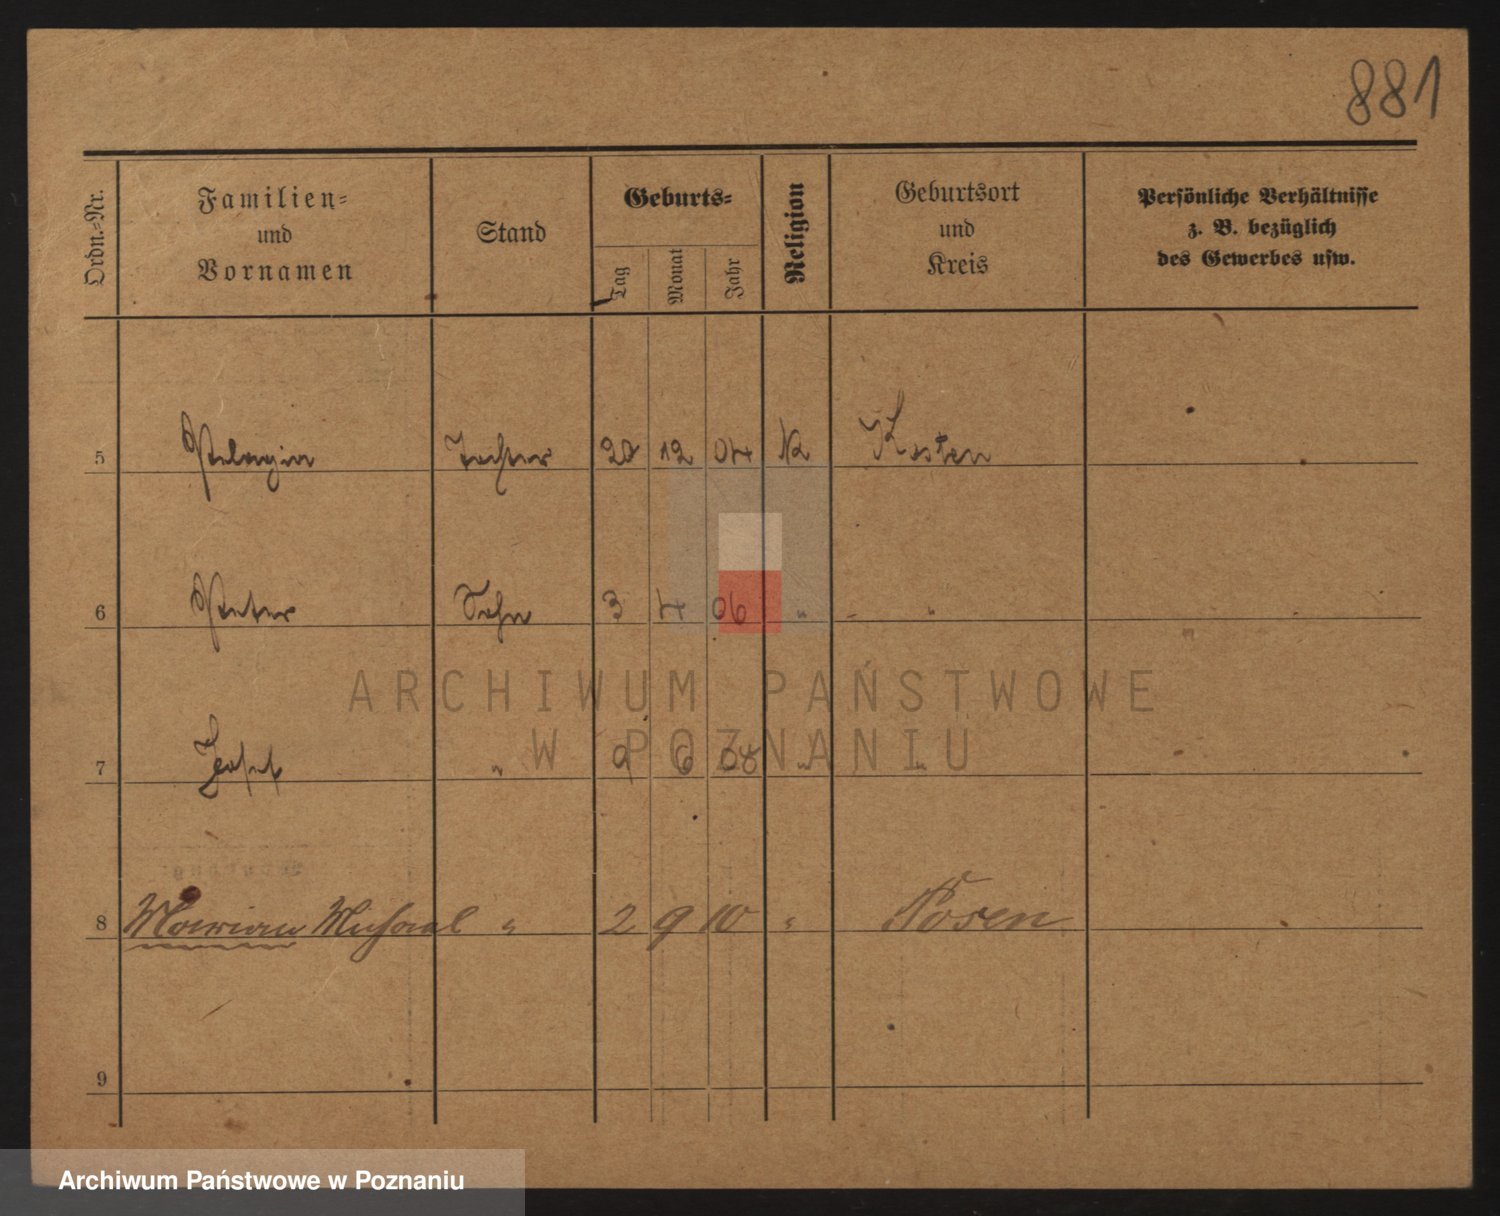 881
Ordn.-Nr.
Familien-
und
Vornamen
Stand
Geburts-
Tag
Monat
Jahr
Religion
Geburtsort
und
Kreis
Persönliche Verhältnisse
z. B. bezüglich
des Gewerbes usw.
5 Pelagia Tochter 20 12 04 K Kosten
6 Peter Sohn 3 4 06 " - "
ARCHIWUM PAŃSTWOWE
W POZNANIU
7 Josef " 9 6 08 " "
8 Marian Michael " 2 9 10 " Posen
9
Archiwum Państwowe w Poznaniu